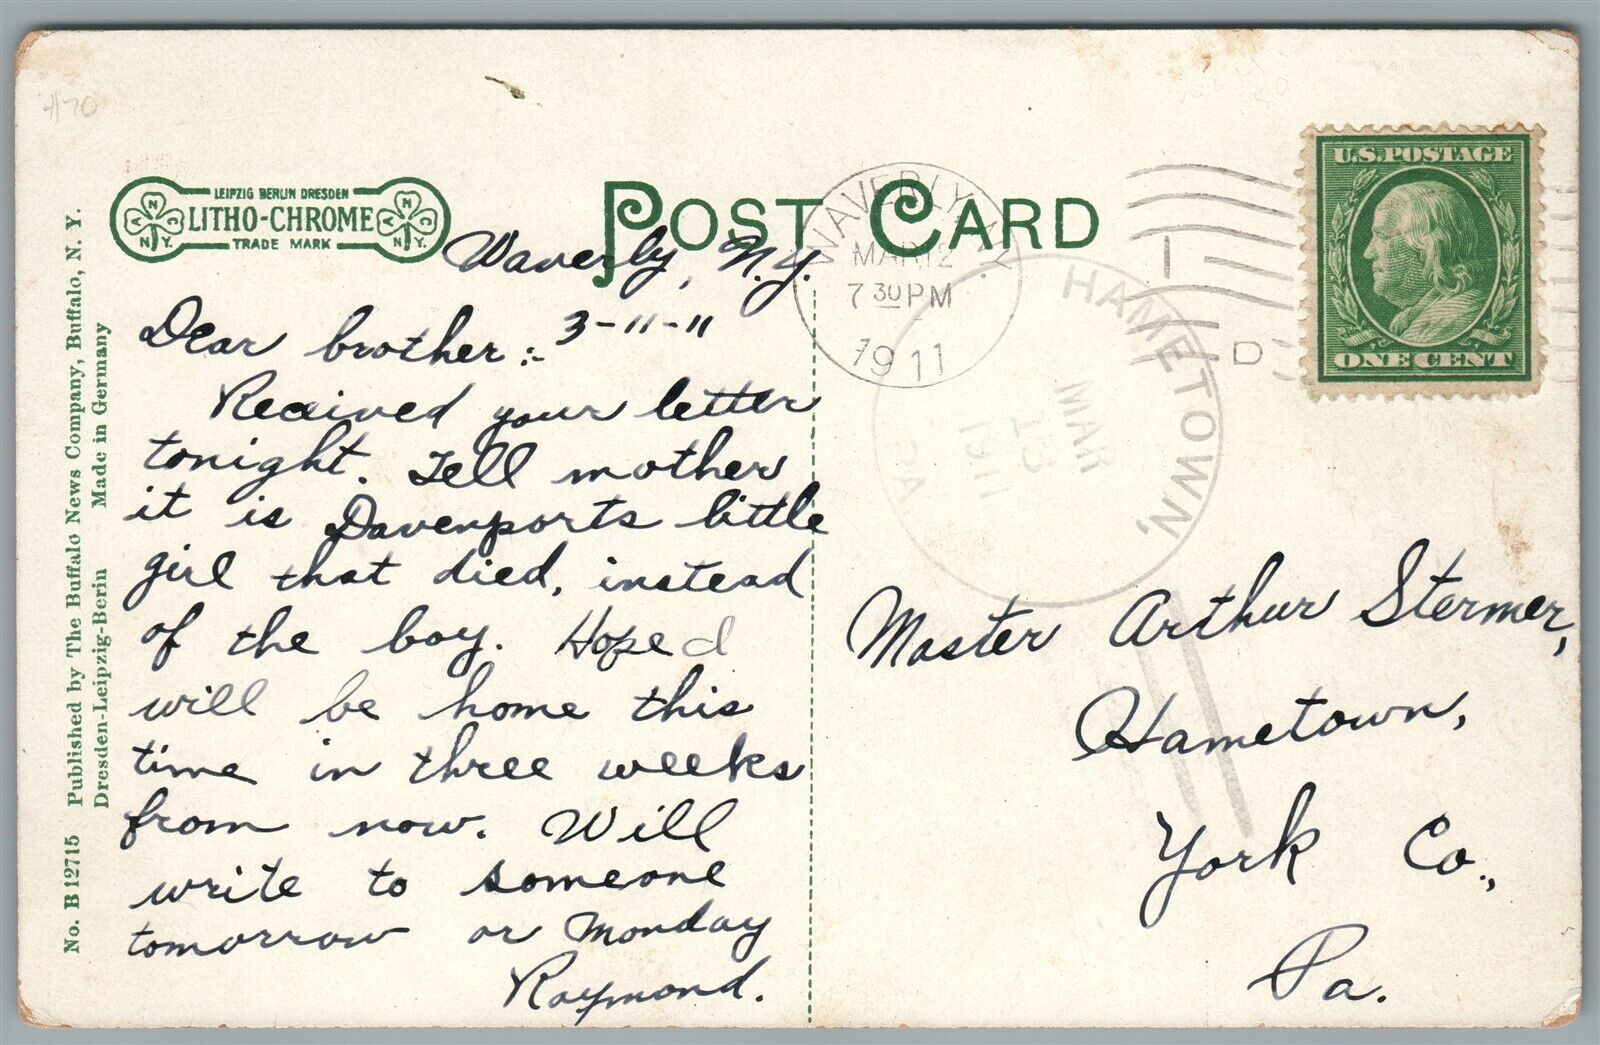 #70
LEIPZIG BERLIN DRESDEN
LITHO-CHROME
TRADE MARK
A N C N.Y.
A N C N.Y.
POST CARD
WAVERLY, N.Y.
MAR 12
7 30 PM
1911
1
D
U.S. POSTAGE
ONE CENT
HAMETOWN, PA.
MAR
13
1911
No. B 12715 Published by The Buffalo News Company, Buffalo, N. Y.
Dresden-Leipzig-Berin Made in Germany
Waverly, N.Y.
3-11-11
Dear brother:-
Received your letter
tonight. Tell mother
it is Davenports little
girl that died, instead
of the boy. Hoped
will be home this
time in three weeks
from now. Will
write to someone
tomorrow or Monday
Raymond.
Master Arthur Stermer,
Hametown,
York Co.,
Pa.